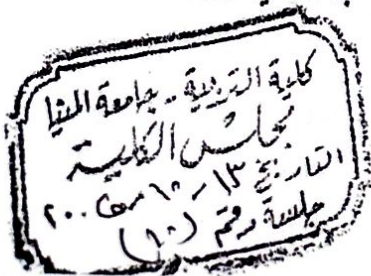 كلية التربية - جامعة المنيا
مجلس الكلية
التاريخ ١٣ - ١٠ - ٢٠٠
جلسة رقم (١٠)